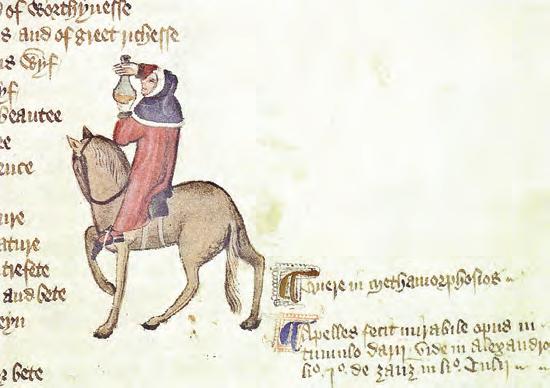 of Worthynesse
s and of greet richesse
is Wyf
yf
beautee
ee
ature
trefete
and bete
eyn
or bete
Quere in Methamorphosios
Apelles fecit mirabile opus in
tumulo darii vide in alexandro
li.º 1.º de zanz in li.º Tulii